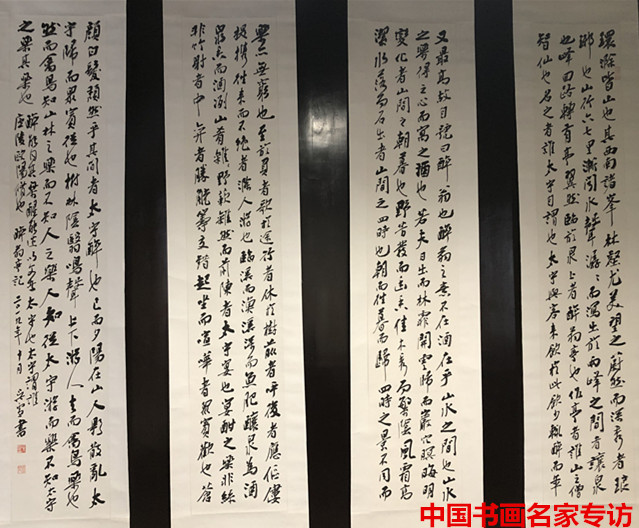 環滁皆山也其西南諸峯林壑尤美望之蔚然而深秀者琅
琊也山行六七里漸聞水聲潺潺而瀉出於兩峰之間者讓泉
也峰回路轉有亭翼然臨於泉上者醉翁亭也作亭者誰山之僧
智仙也名之者誰太守自謂也太守與客來飲於此飲少輒醉而年
又最高故自號曰醉翁也醉翁之意不在酒在乎山水之間也山水
之樂得之心而寓之酒也若夫日出而林霏開雲歸而巖穴暝晦明
變化者山間之朝暮也野芳發而幽香佳木秀而繁陰風霜高
潔水落而石出者山間之四時也朝而往暮而歸四時之景不同而
樂無窮也至於負者歌於途行者休於樹前者呼後者應傴僂
提攜往來而不絕者滁人游也臨溪而漁溪深而魚肥釀泉為酒
泉香而酒洌山肴野蔌雜然而前陳者太守宴也宴酣之樂非絲
非竹射者中弈者勝觥籌交錯起坐而喧嘩者眾賓歡也蒼
顏白髮頹然乎其間者太守醉也已而夕陽在山人影散亂太
守歸而眾賓從也樹林陰翳鳴聲上下游人去而禽鳥樂也
然而禽鳥知山林之樂而不知人之樂人知從太守游而樂不知太守
之樂其樂也醉能同其樂醒能述以文者太守也太守謂誰
廬陵歐陽修也 醉翁亭記 二〇一九年十月 書
中国书画名家专访